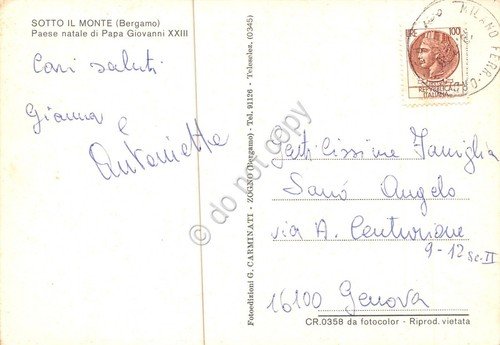 SOTTO IL MONTE (Bergamo)
Paese natale di Papa Giovanni XXIII
Cari saluti
Gianna e
Antonietta
Fotoedizioni G. CARMINATI - ZOGNO (Bergamo) - Tel. 91126 - Teleselez. (0345)
LIRE 100
REPUBBLICA
ITALIANA
MILANO FERR. C.
Gentilissime Famiglia
Sanò Angelo
via A. Centurione
9-12 sc. II
16100 Genova
CR.0358 da fotocolor - Riprod. vietata
do not copy